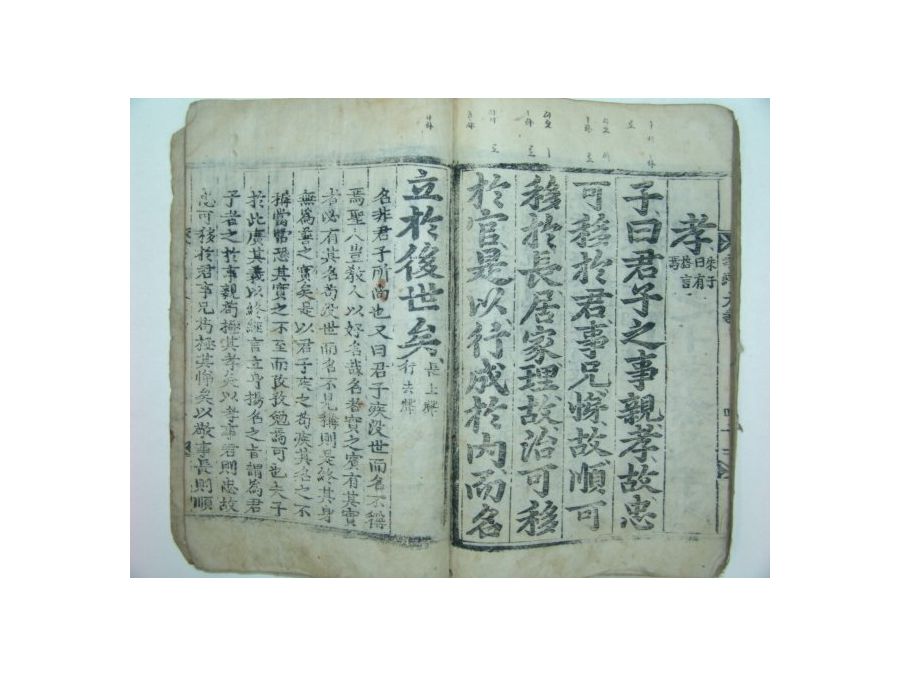 孝
朱子
曰有
甚言
焉
子曰君子之事親孝故忠
可移於君事兄悌故順可
移於長居家理故治可移
於官是以行成於內而名
立於後世矣
長上聲
行去聲
名非君子所尚也又曰君子疾沒世而名不稱
焉聖人豈敎人以好名哉名者實之賓有其實
者必有其名苟沒世而名不見稱則是終其身
無為善之實矣是以君子疾之苟疾其名之不
稱當常恐其實之不至而孜孜勉焉可也夫子
於此廣其義以終經言立身揚名之旨謂為君
子者之於事親苟極其孝矣以孝事君則忠故
忠可移於君事兄苟極其悌矣以敬事長則順